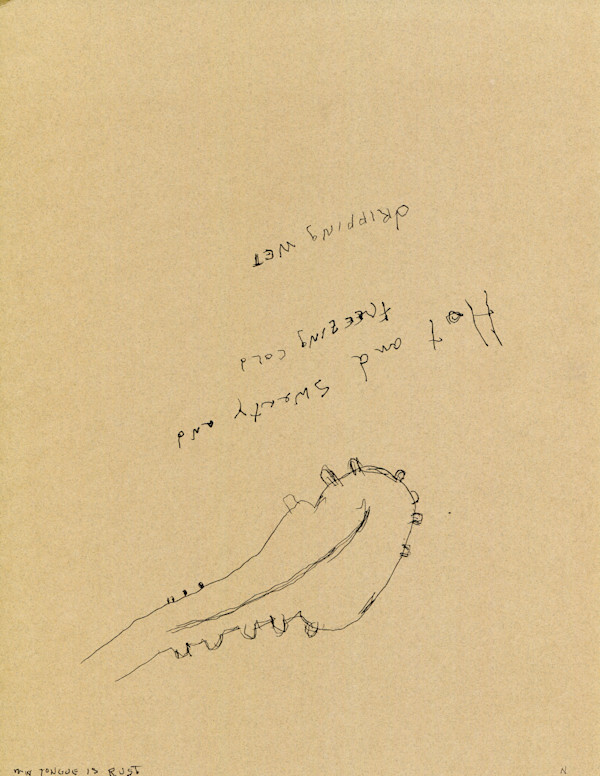 Hot and Sweaty and
FREEZINg COLd
dRIPPINg WET
MY TONGUE IS RUST
N